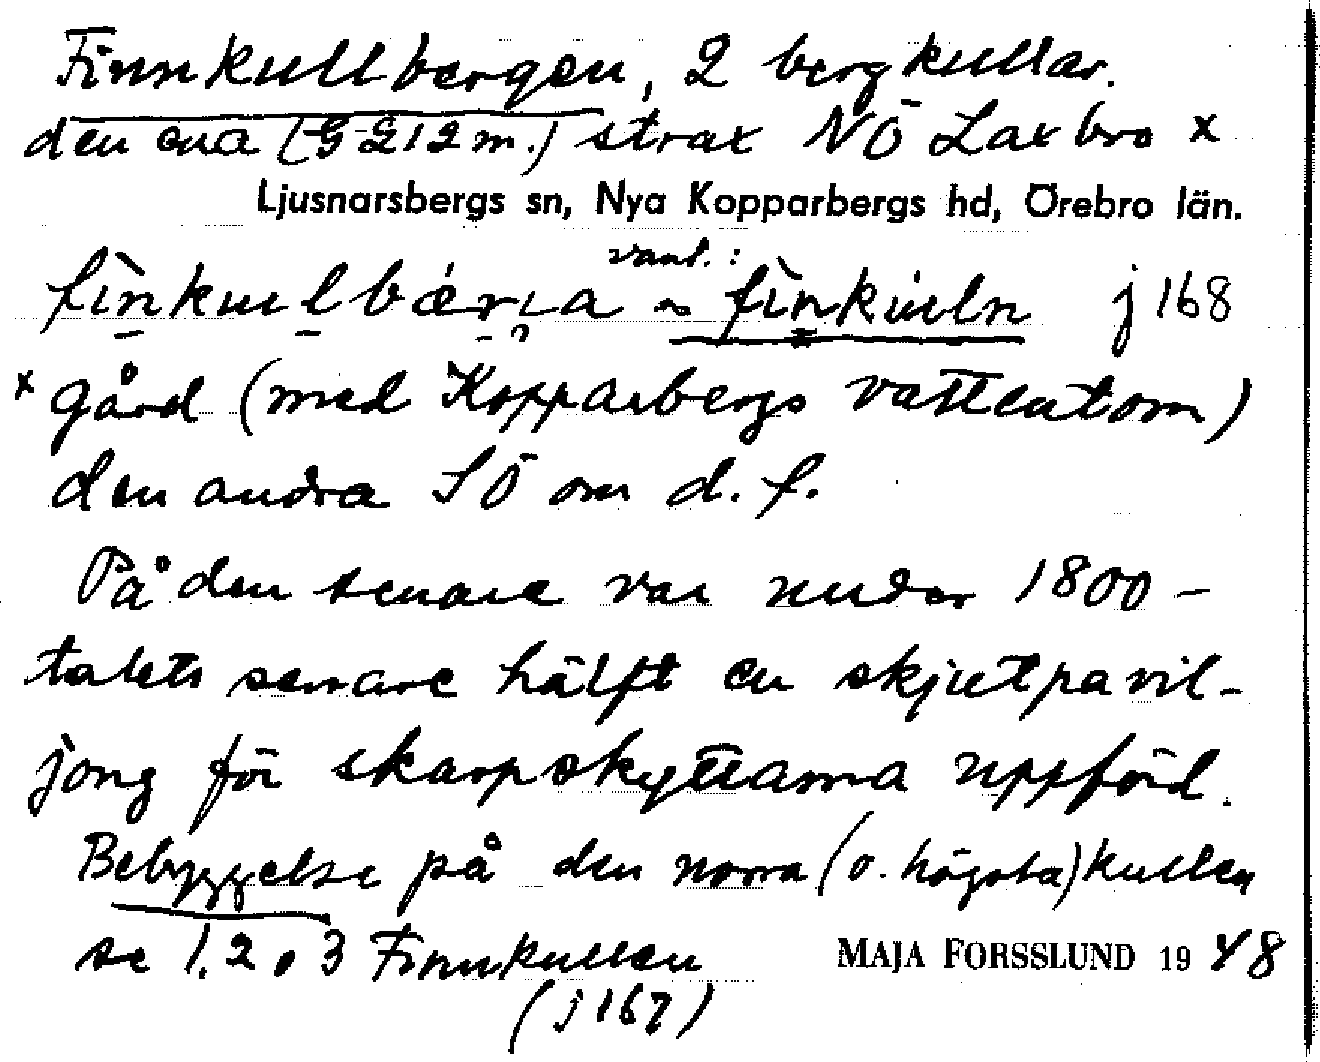 Finnkullbergen, 2 bergkullar.
den ena (G 212 m.) strax NÖ Laxbro x
Ljusnarsbergs sn, Nya Kopparbergs hd, Örebro län.
vanl. :
fìnkulbǽrja ~ fìnkúln j 168
x gård (med Kopparbergs vattentorn)
den andra SÖ om d. f.
På den senare var under 1800-
talets senare hälft en skjutpavil-
jong för skarpskyttarna uppförd.
Bebyggelse på den norra (o. högsta) kullen
se 1, 2 o 3 Finnkullen
MAJA FORSSLUND 19 48
(j 167)